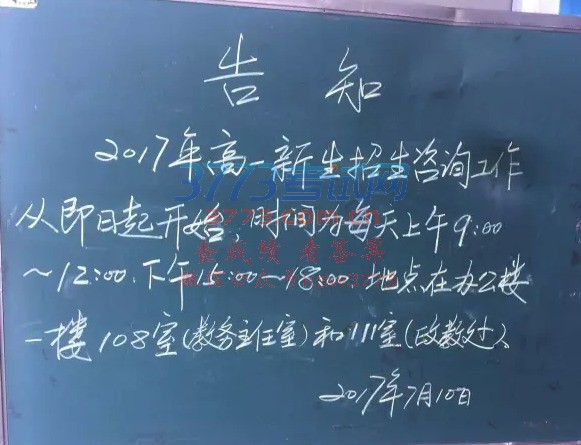 告 知
2017年高一新生招生咨询工作
从即日起开始,时间为每天上午9:00
~12:00.下午15:00~18:00.地点在办公楼
一楼108室(教务主任室)和111室(政教处)、
2017年7月10日
3773考试网
3773.com
查成绩 看答案